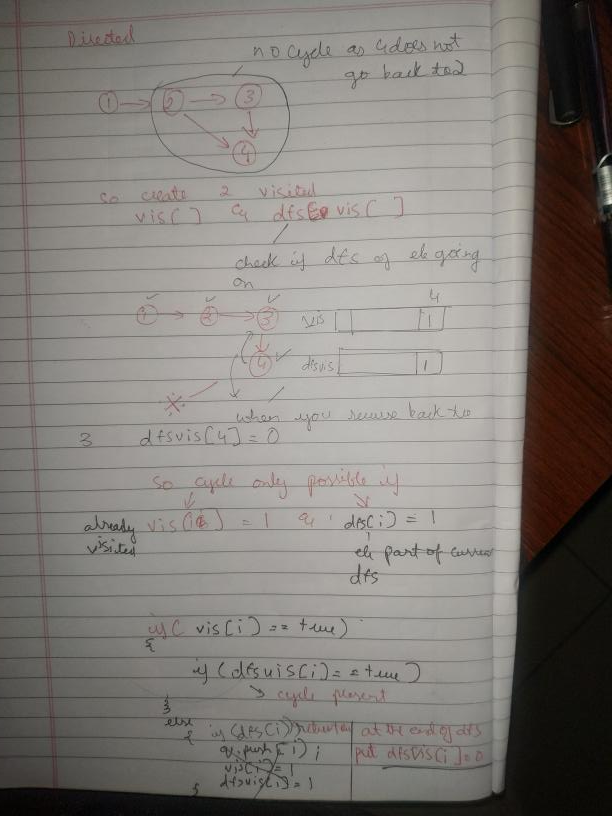 Directed
no cycle as 4 does not
go back to 2
1 → 2 → 3
4
so create 2 visited
vis[ ] & dfs vis[ ]
check if dfs of ele going
on
4
1 → 2 → 3 vis 1
4 dfsvis 1
when you recurse back to
3 dfsvis[4] = 0
so cycle only possible if
already vis[i] = 1 & dfs[i] = 1
visited
ele part of current
dfs
if( vis[i] == true)
{
if (dfsvis[i] == true)
→ cycle present
}
else
{ if (dfs(i)) return true at the end of dfs
q.push(i); put dfsvis[i]=0
vis[i] = 1
dfsvis[i] = 1
}